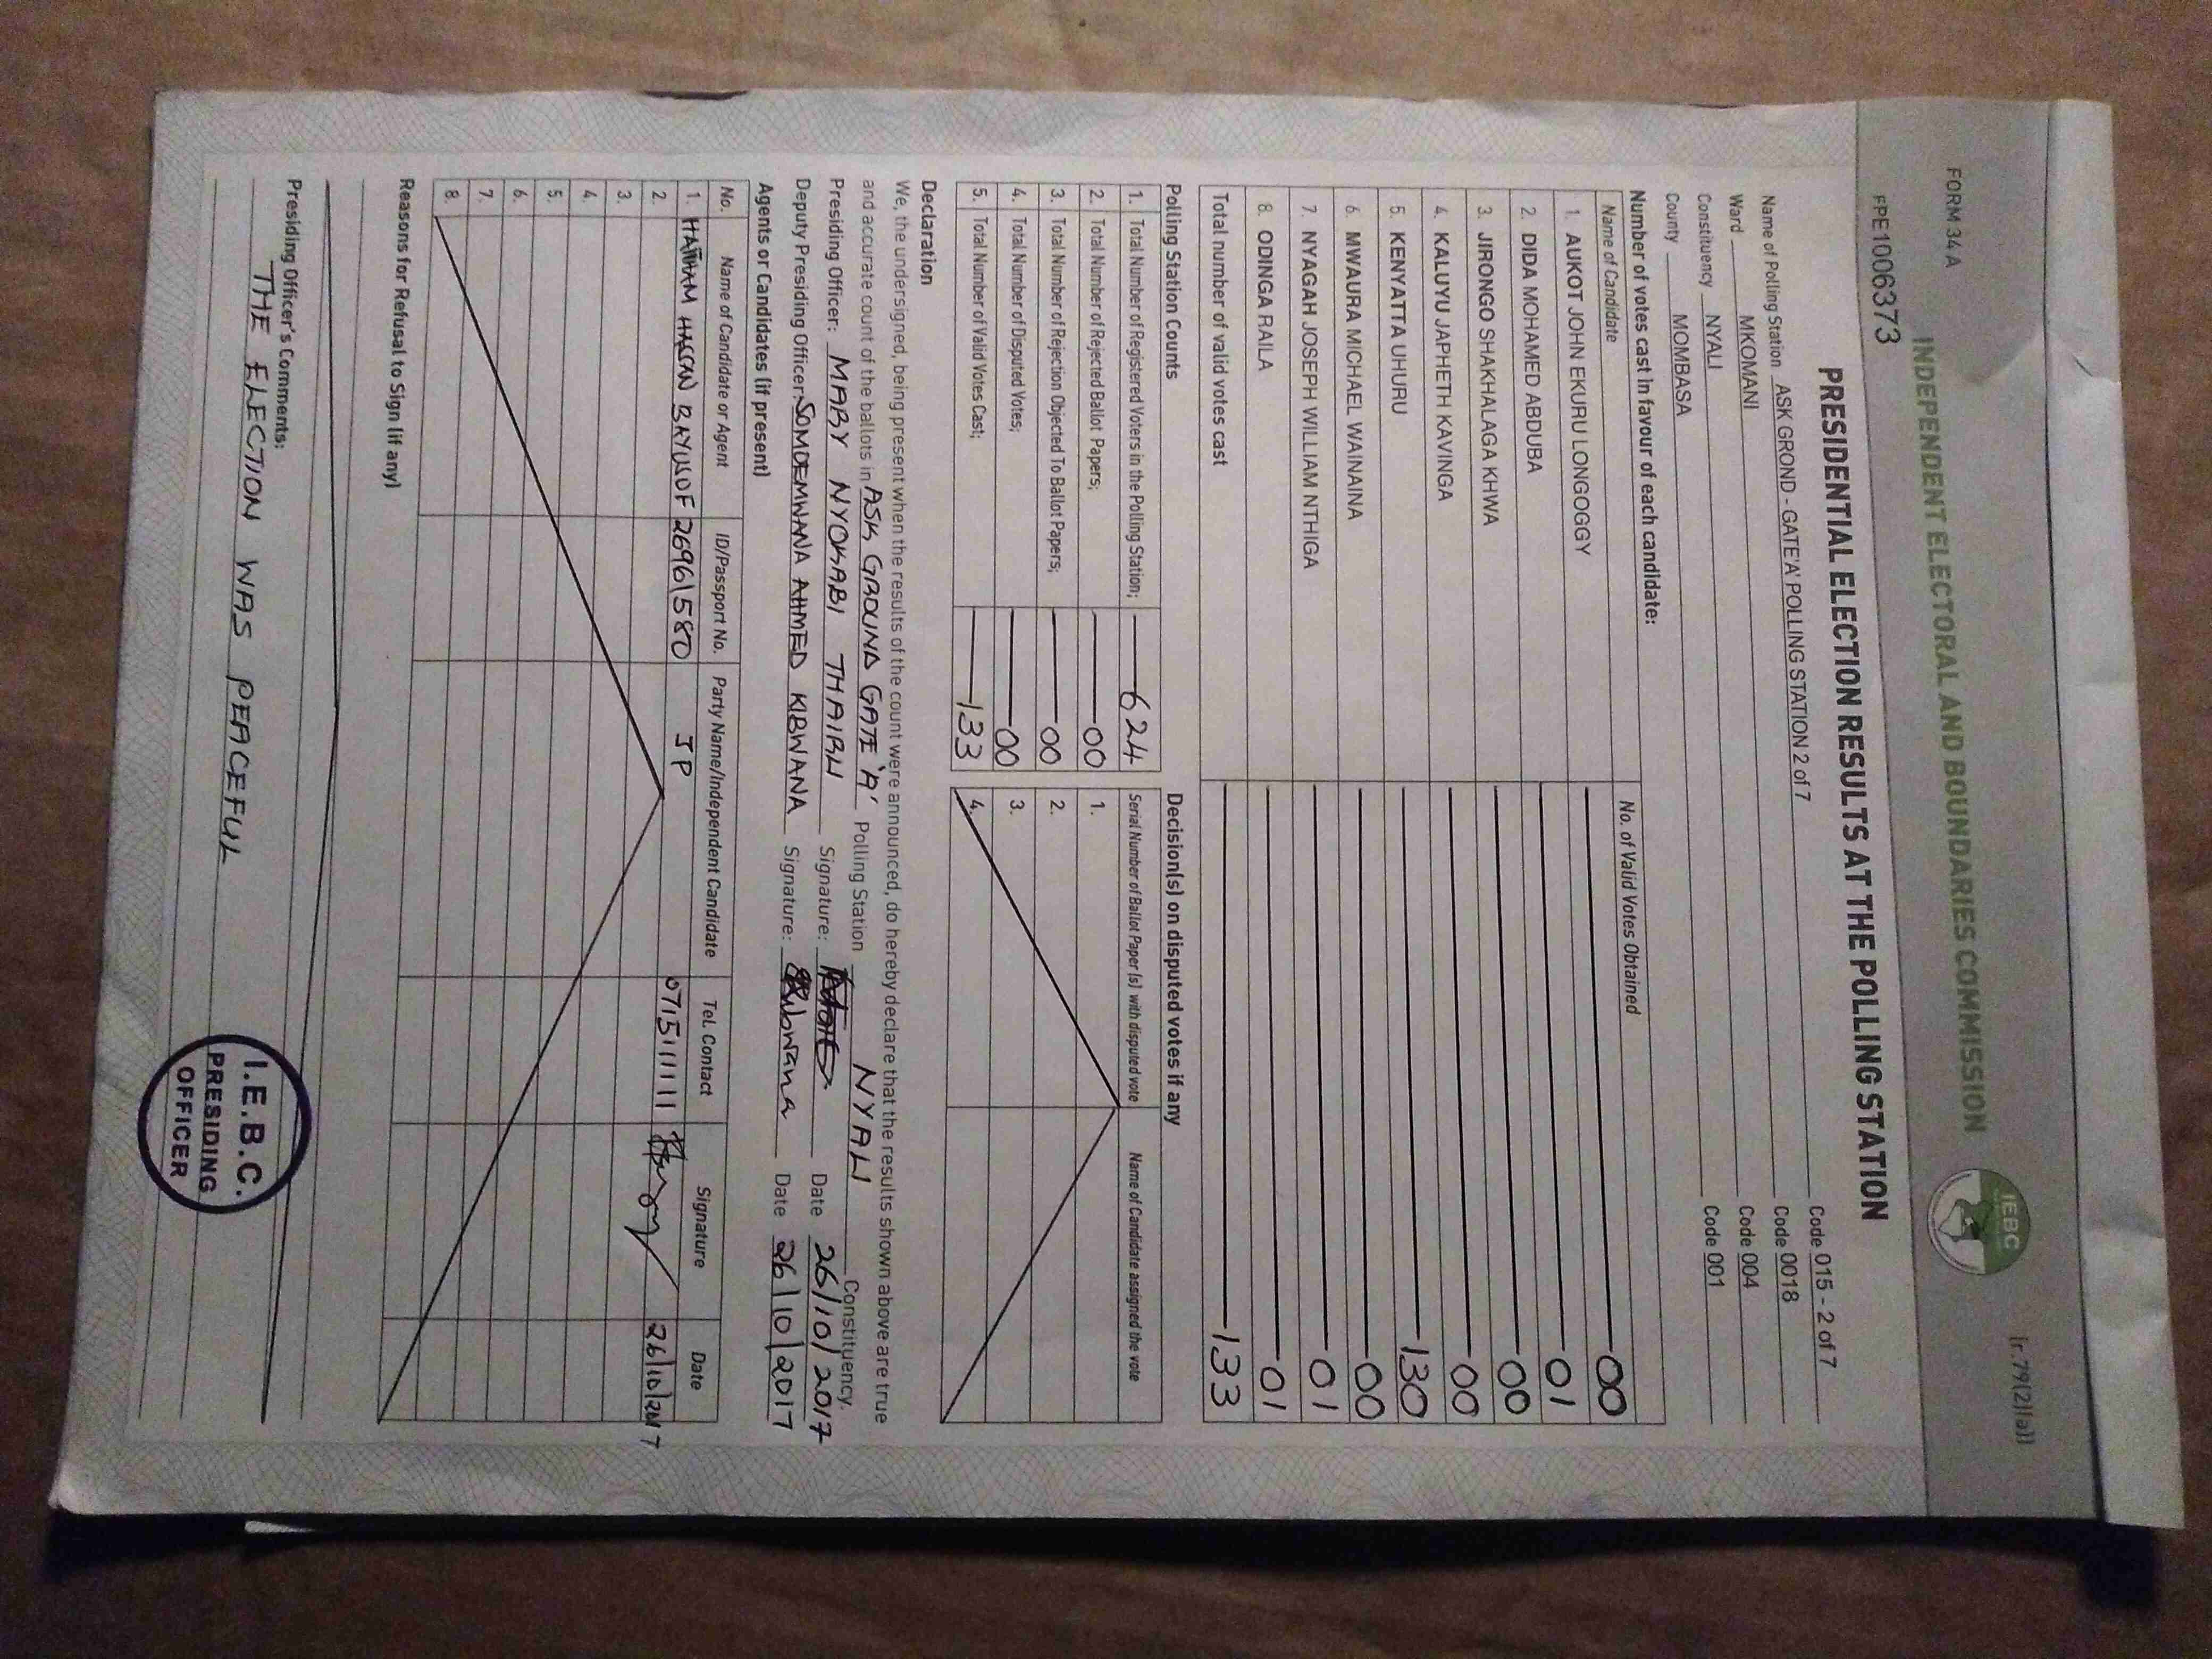 FORM 34 A
[r 79(2)(a)]
INDEPENDENT ELECTORAL AND BOUNDARIES COMMISSION
IEBC
FPE1006373
PRESIDENTIAL ELECTION RESULTS AT THE POLLING STATION
Name of Polling Station ASK GROND - GATE'A' POLLING STATION 2 of 7 Code 015 - 2 of 7
Ward MKOMANI Code 0018
Constituency NYALI Code 004
County MOMBASA Code 001
Number of votes cast in favour of each candidate:
Name of Candidate No. of Valid Votes Obtained
1. AUKOT JOHN EKURU LONGOGGY 00
2. DIDA MOHAMED ABDUBA 01
3. JIRONGO SHAKHALAGA KHWA 00
4. KALUYU JAPHETH KAVINGA 00
5. KENYATTA UHURU 130
6. MWAURA MICHAEL WAINAINA 00
7. NYAGAH JOSEPH WILLIAM NTHIGA 01
8. ODINGA RAILA 01
Total number of valid votes cast 133
Polling Station Counts
1. Total Number of Registered Voters in the Polling Station; 624
2. Total Number of Rejected Ballot Papers; 00
3. Total Number of Rejection Objected To Ballot Papers; 00
4. Total Number of Disputed Votes; 00
5. Total Number of Valid Votes Cast; 133
Decision(s) on disputed votes if any
Serial Number of Ballot Paper (s) with disputed vote Name of Candidate assigned the vote
1.
2.
3.
4.
Declaration
We, the undersigned, being present when the results of the count were announced, do hereby declare that the results shown above are true
and accurate count of the ballots in ASK GROUND GATE 'A' Polling Station NYALI Constituency.
Presiding Officer: MARY NYOKABI THAIRU Signature: Date 26/10/2017
Deputy Presiding Officer: SOMOEMWANA AHMED KIBWANA Signature: Kibwana Date 26/10/2017
Agents or Candidates (if present)
No. Name of Candidate or Agent ID/Passport No. Party Name/Independent Candidate Tel. Contact Signature Date
1. HAITHAM HASSAN BAYUSUF 26961580 JP 0715111111 26/10/2017
2.
3.
4.
5.
6.
7.
8.
Reasons for Refusal to Sign (if any)
Presiding Officer's Comments:
THE ELECTION WAS PEACEFUL
I.E.B.C.
PRESIDING
OFFICER